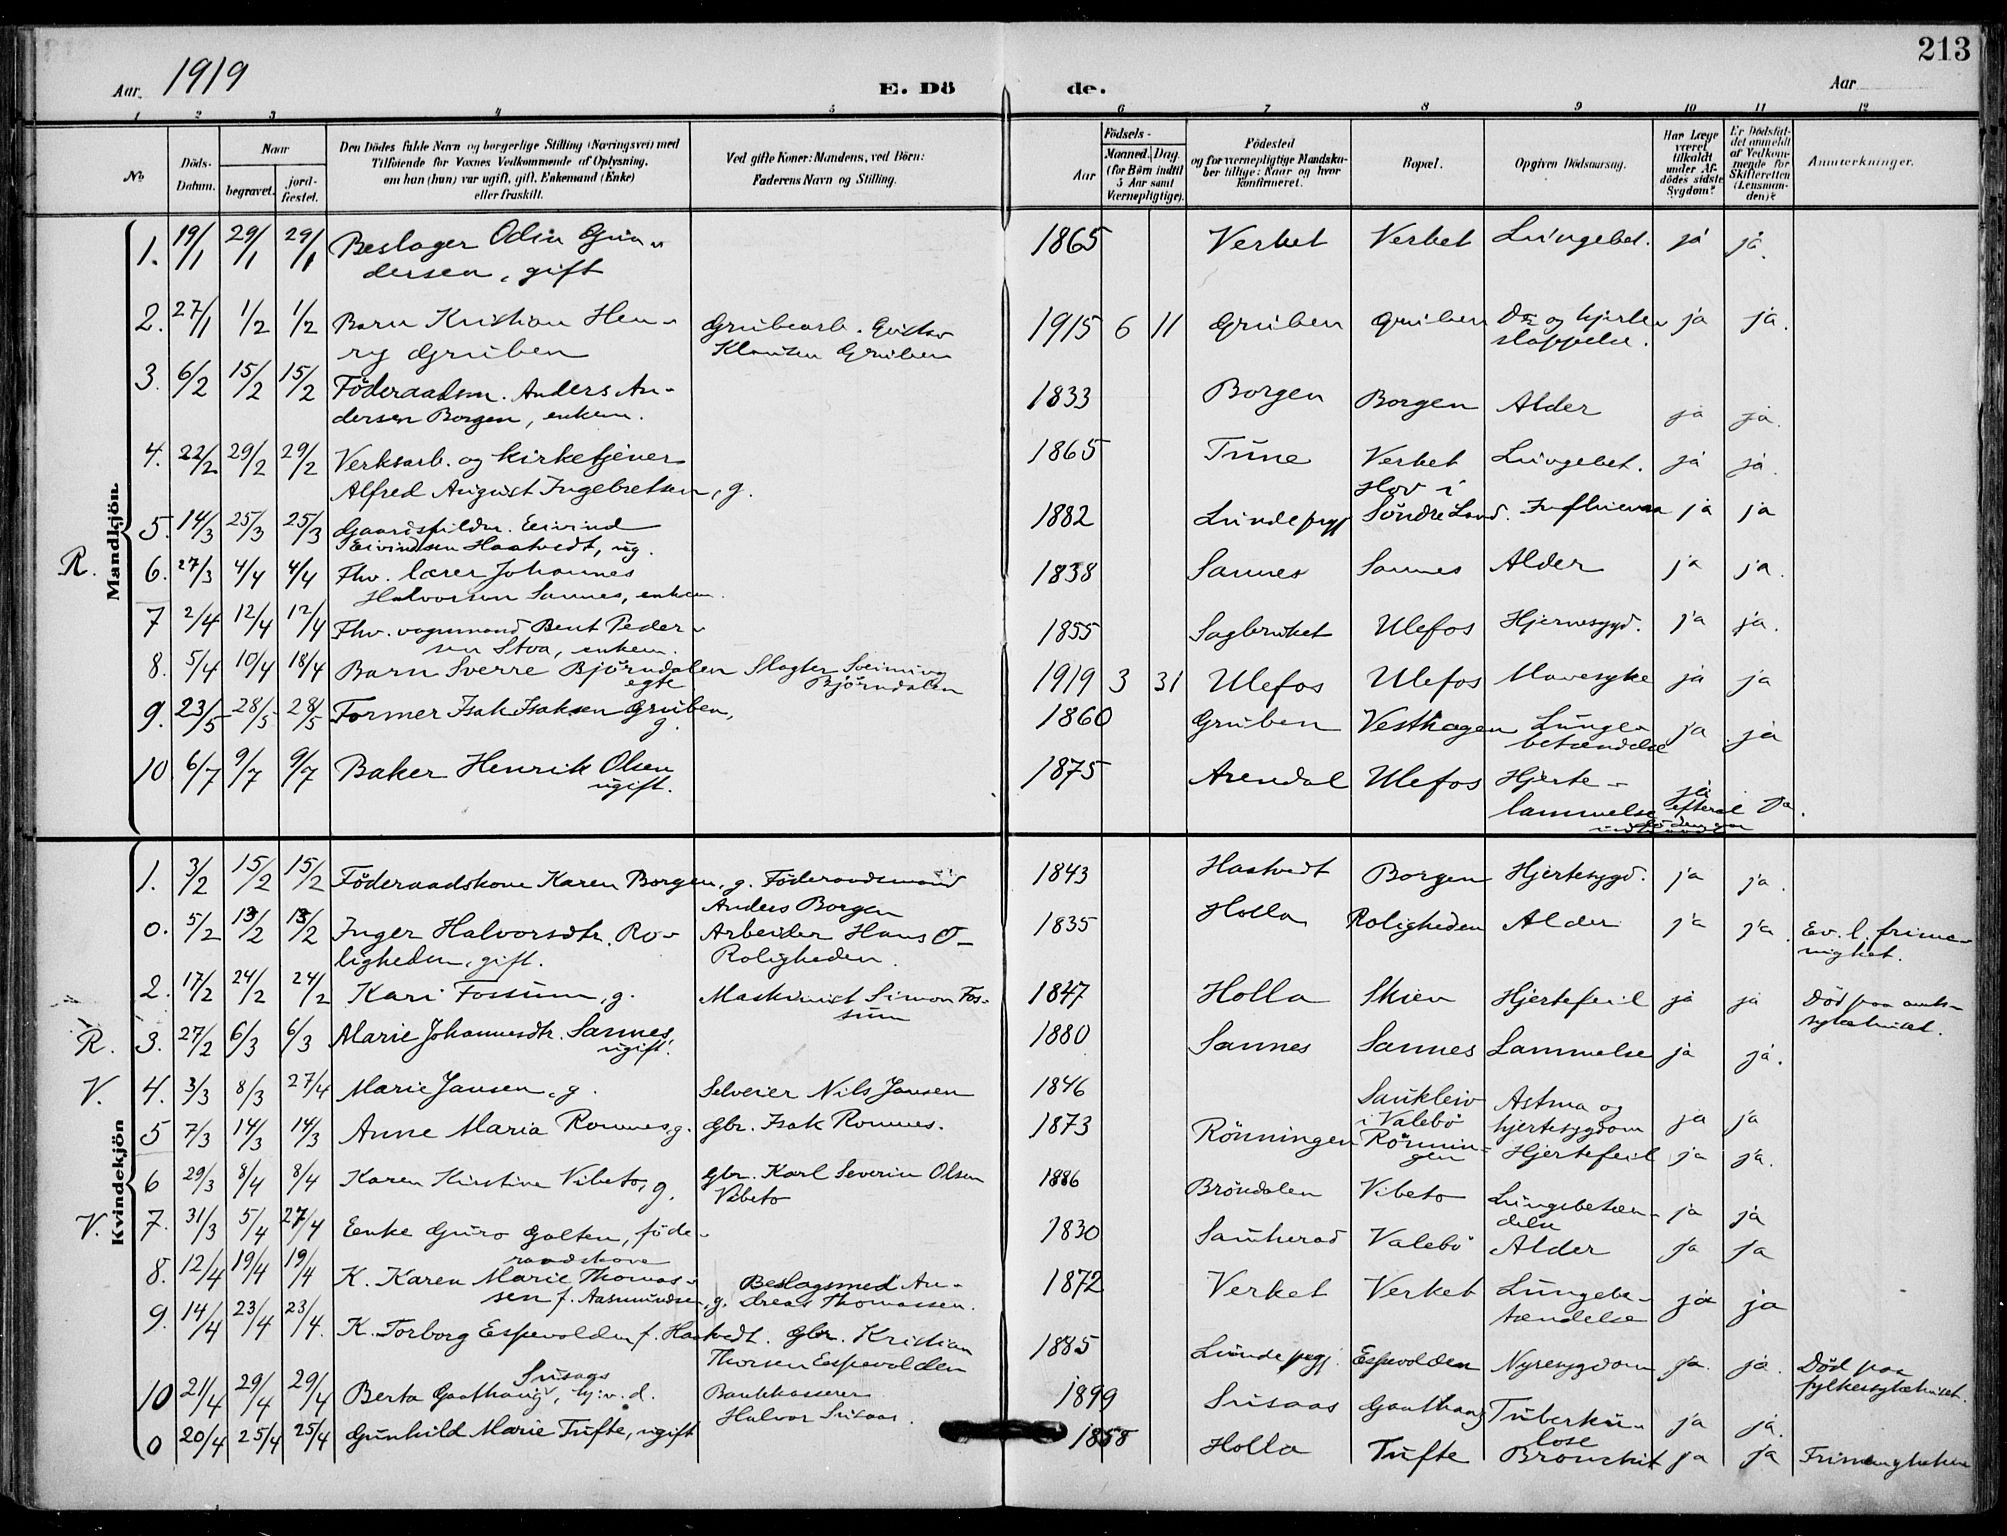 213
Aar 1919
E. Dö de.
Aar
1 2 3 4 5 6 7 8 9 10 11 12
No.
Döds-Datum.
Naar
begravet.
jord-fæstet.
Den Dödes fulde Navn og borgerlige Stilling (Næringsvei) med
Tilföiende for Voxnes Vedkommende af Oplysning,
om han (hun) var ugift, gift, Enkemand (Enke)
eller fraskilt.
Ved gifte Koner: Mandens, ved Börn:
Faderens Navn og Stilling.
Födsels-
Aar
Maaned. Dag.
(for Børn indtil
5 Aar samt
Værnepligtige).
Födested
og for værnepligtige Mandska-
ber tillige: Naar og hvor
konfirmeret.
Bopæl.
Opgiven Dödsaarsag.
Har Læge
været
tilkaldt
under Af-
dödes sidste
Sygdom?
Er Dödsfal-
det anmeldt
af Vedkom-
mende for
Skifteretten
(Lensman-
den)?
Anmærkninger.
Mandkjön
1. 19/1 29/1 29/1 Beslager Odin Gun-
dersen, gift 1865 Verket Verket Lungebet. ja ja.
2. 27/1 1/2 1/2 Barn Kristian Hen-
ry Gruben Grubearb. Gustav
Klausen Gruben 1915 6 11 Gruben Gruben og hjerte
slappelse. ja ja.
3. 6/2 15/2 15/2 Föderaadsm. Anders An-
dersen Borgen, enkem. 1833 Borgen Borgen Alder ja ja.
4. 22/2 29/2 29/2 Verksarb. og kirketjener
Alfred August Ingebretsen, g. 1865 Tune Verket Lungebet. ja ja.
5. 14/3 25/3 25/3 Eivind
Eivindsen Haatvedt, ug. 1882 Lunde pgj Hov i
Söndre Land. Influensa ja ja
R. 6. 27/3 4/4 4/4 Fhv. lærer Johannes
Halvorsen Sannes, enkem. 1838 Sannes Sannes Alder ja ja.
7 2/4 12/4 12/4 Fhv. vognmand Bent Peder-
sen Stoa, enkem. 1855 Sagbruket Ulefos Hjernesygd. ja ja.
8. 5/4 10/4 18/4 Barn Sverre Björndalen
egte Slagter Sveinung
Björndalen 1919 3 31 Ulefos Ulefos Mavesyke ja ja
9. 23/5 28/5 28/5 Former Isak Isaksen Gruben,
g. 1860 Gruben Vesthagen Lunge-
betændelse ja ja
10 6/7 9/7 9/7 Baker Henrik Olsen
ugift. 1875 Arendal Ulefos Hjerte-
lammelse ja
efterat
döden var
indtraadt ja.
Kvindekjön
1. 3/2 15/2 15/2 Föderaadskone Karen Borgen, g. Föderaadsmand
Anders Borgen 1843 Haatvedt Borgen Hjertesygd. ja ja.
0. 5/2 13/2 13/2 Inger Halvorsdtr. Ro-
ligheden, gift. Arbeider Hans O-
Roligheden. 1835 Holla Roligheden Alder ja ja. Ev. l. frime-
nighet.
2. 17/2 24/2 24/2 Kari Fossum, g. Maskinist Simon Fos-
sum 1847 Holla Skien Hjertefeil ja ja Död paa amts-
sykehuset.
R. 3. 27/2 6/3 6/3 Marie Johannesdtr. Sannes,
ugift. 1880 Sannes Sannes Lammelse ja ja.
V. 4. 3/3 8/3 27/4 Marie Jansen, g. Selveier Nils Jansen 1846 Saukleiv
i Valebö Astma og
hjertesygdom ja ja
5 7/3 14/3 14/3 Anne Maria Romnes, g. Gbr. Isak Romnes. 1873 Rönningen Rönnin-
gen Hjertefeil ja ja.
6 29/3 8/4 8/4 Karen Kirstine Vibeto, g. Gbr. Karl Severin Olsen
Vibeto 1886 Bröndalen Vibeto Lungebetæn-
delse ja ja
V. 7. 31/3 5/4 27/4 Enke Guro Galten, föde-
raadskone 1830 Sauherad Valebö Alder ja ja
8. 12/4 19/4 19/4 K. Karen Marie Thomas-
sen f. Aasmundsen, g. Beslagsmed An-
dreas Thomassen. 1872 Verket Verket Lungebe-
tændelse ja ja
9. 14/4 23/4 23/4 K. Torborg Espevolden f. Haatvedt. Gbr. Kristian
Thorsen Espevolden 1885 Lunde pgj. Espevolden Nyresygdom ja. ja. Död paa
fylkessykehuset.
10 21/4 29/4 29/4 Berta Gaathaug, Susaas tj. v. d. Bankkasserer
Halvor Susaas. 1899 Susaas Gaathaug Tuberku-
lose ja ja.
0 20/4 25/4 25/4 Gunhild Marie Tufte, ugift 1858 Holla Tufte Bronchit ja ja Frimenigheten